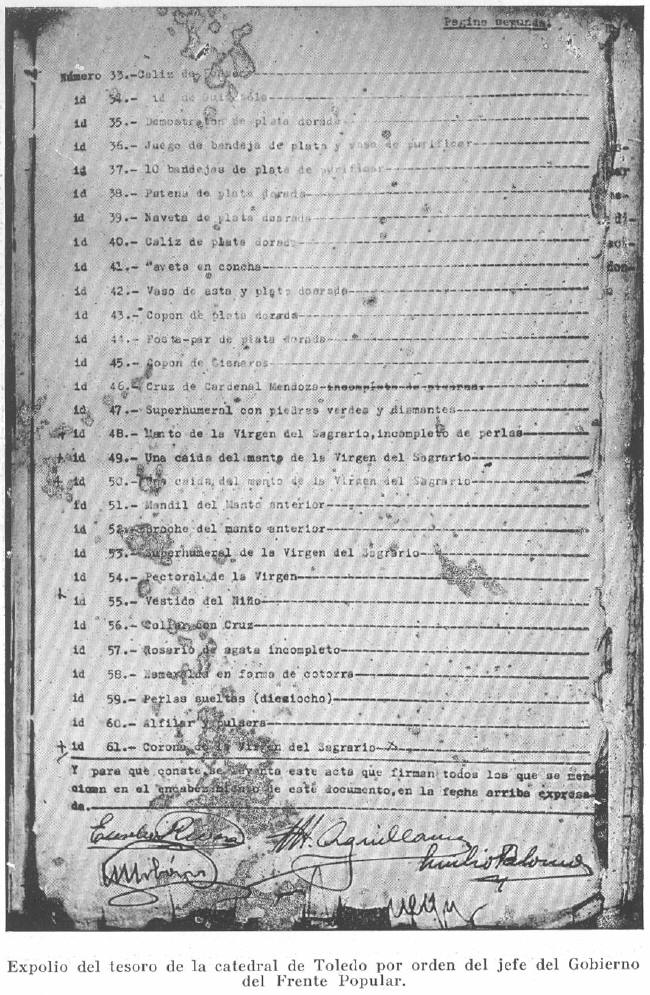 Pagina segunda.
Número 33.-Caliz de
id 34.- id de
id 35.- Demostrador de plata dorada
id 36.- Juego de bandeja de plata y vaso de purificar
id 37.- 10 bandejas de plata de purificar
id 38.- Patena de plata dorada
id 39.- Naveta de plata doarada
id 40.- Caliz de plata dorada
id 41.- aveta en concha
id 42.- Vaso de asta y plata doarada
id 43.- Copon de plata dorada
id 44.- Posta-par de plata dorada
id 45.- Copon de Cisneros
id 46.- Cruz de Cardenal Mendoza incompleta de piedras.
id 47.- Superhumeral con piedras verdes y diamantes
id 48.- Manto de la Virgen del Sagrario,incompleto de perlas
id 49.- Una caida del manto de la Virgen del Sagrario
id 50.- Una caida del manto de la Virgen del Sagrario
id 51.- Mandil del Manto anterior
id 52.- Broche del manto anterior
id 53.- Superhumeral de la Virgen del Sagrario
id 54.- Pectoral de la Virgen
id 55.- Vestido del Niño
id 56.- Collar con Cruz
id 57.- Rosario de agata incompleto
id 58.- Esmeralda en forma de cotorra
id 59.- Perlas sueltas (dieciocho)
id 60.- Alfiler y pulsera
id 61.- Corona de la Virgen del Sagrario
Y para que conste,se levanta este acta que firman todos los que se men-
cionan en el encabezamiento de este documento,en la fecha arriba expresa-
da.
Rivera
Emilio Palomo
Expolio del tesoro de la catedral de Toledo por orden del jefe del Gobierno
del Frente Popular.